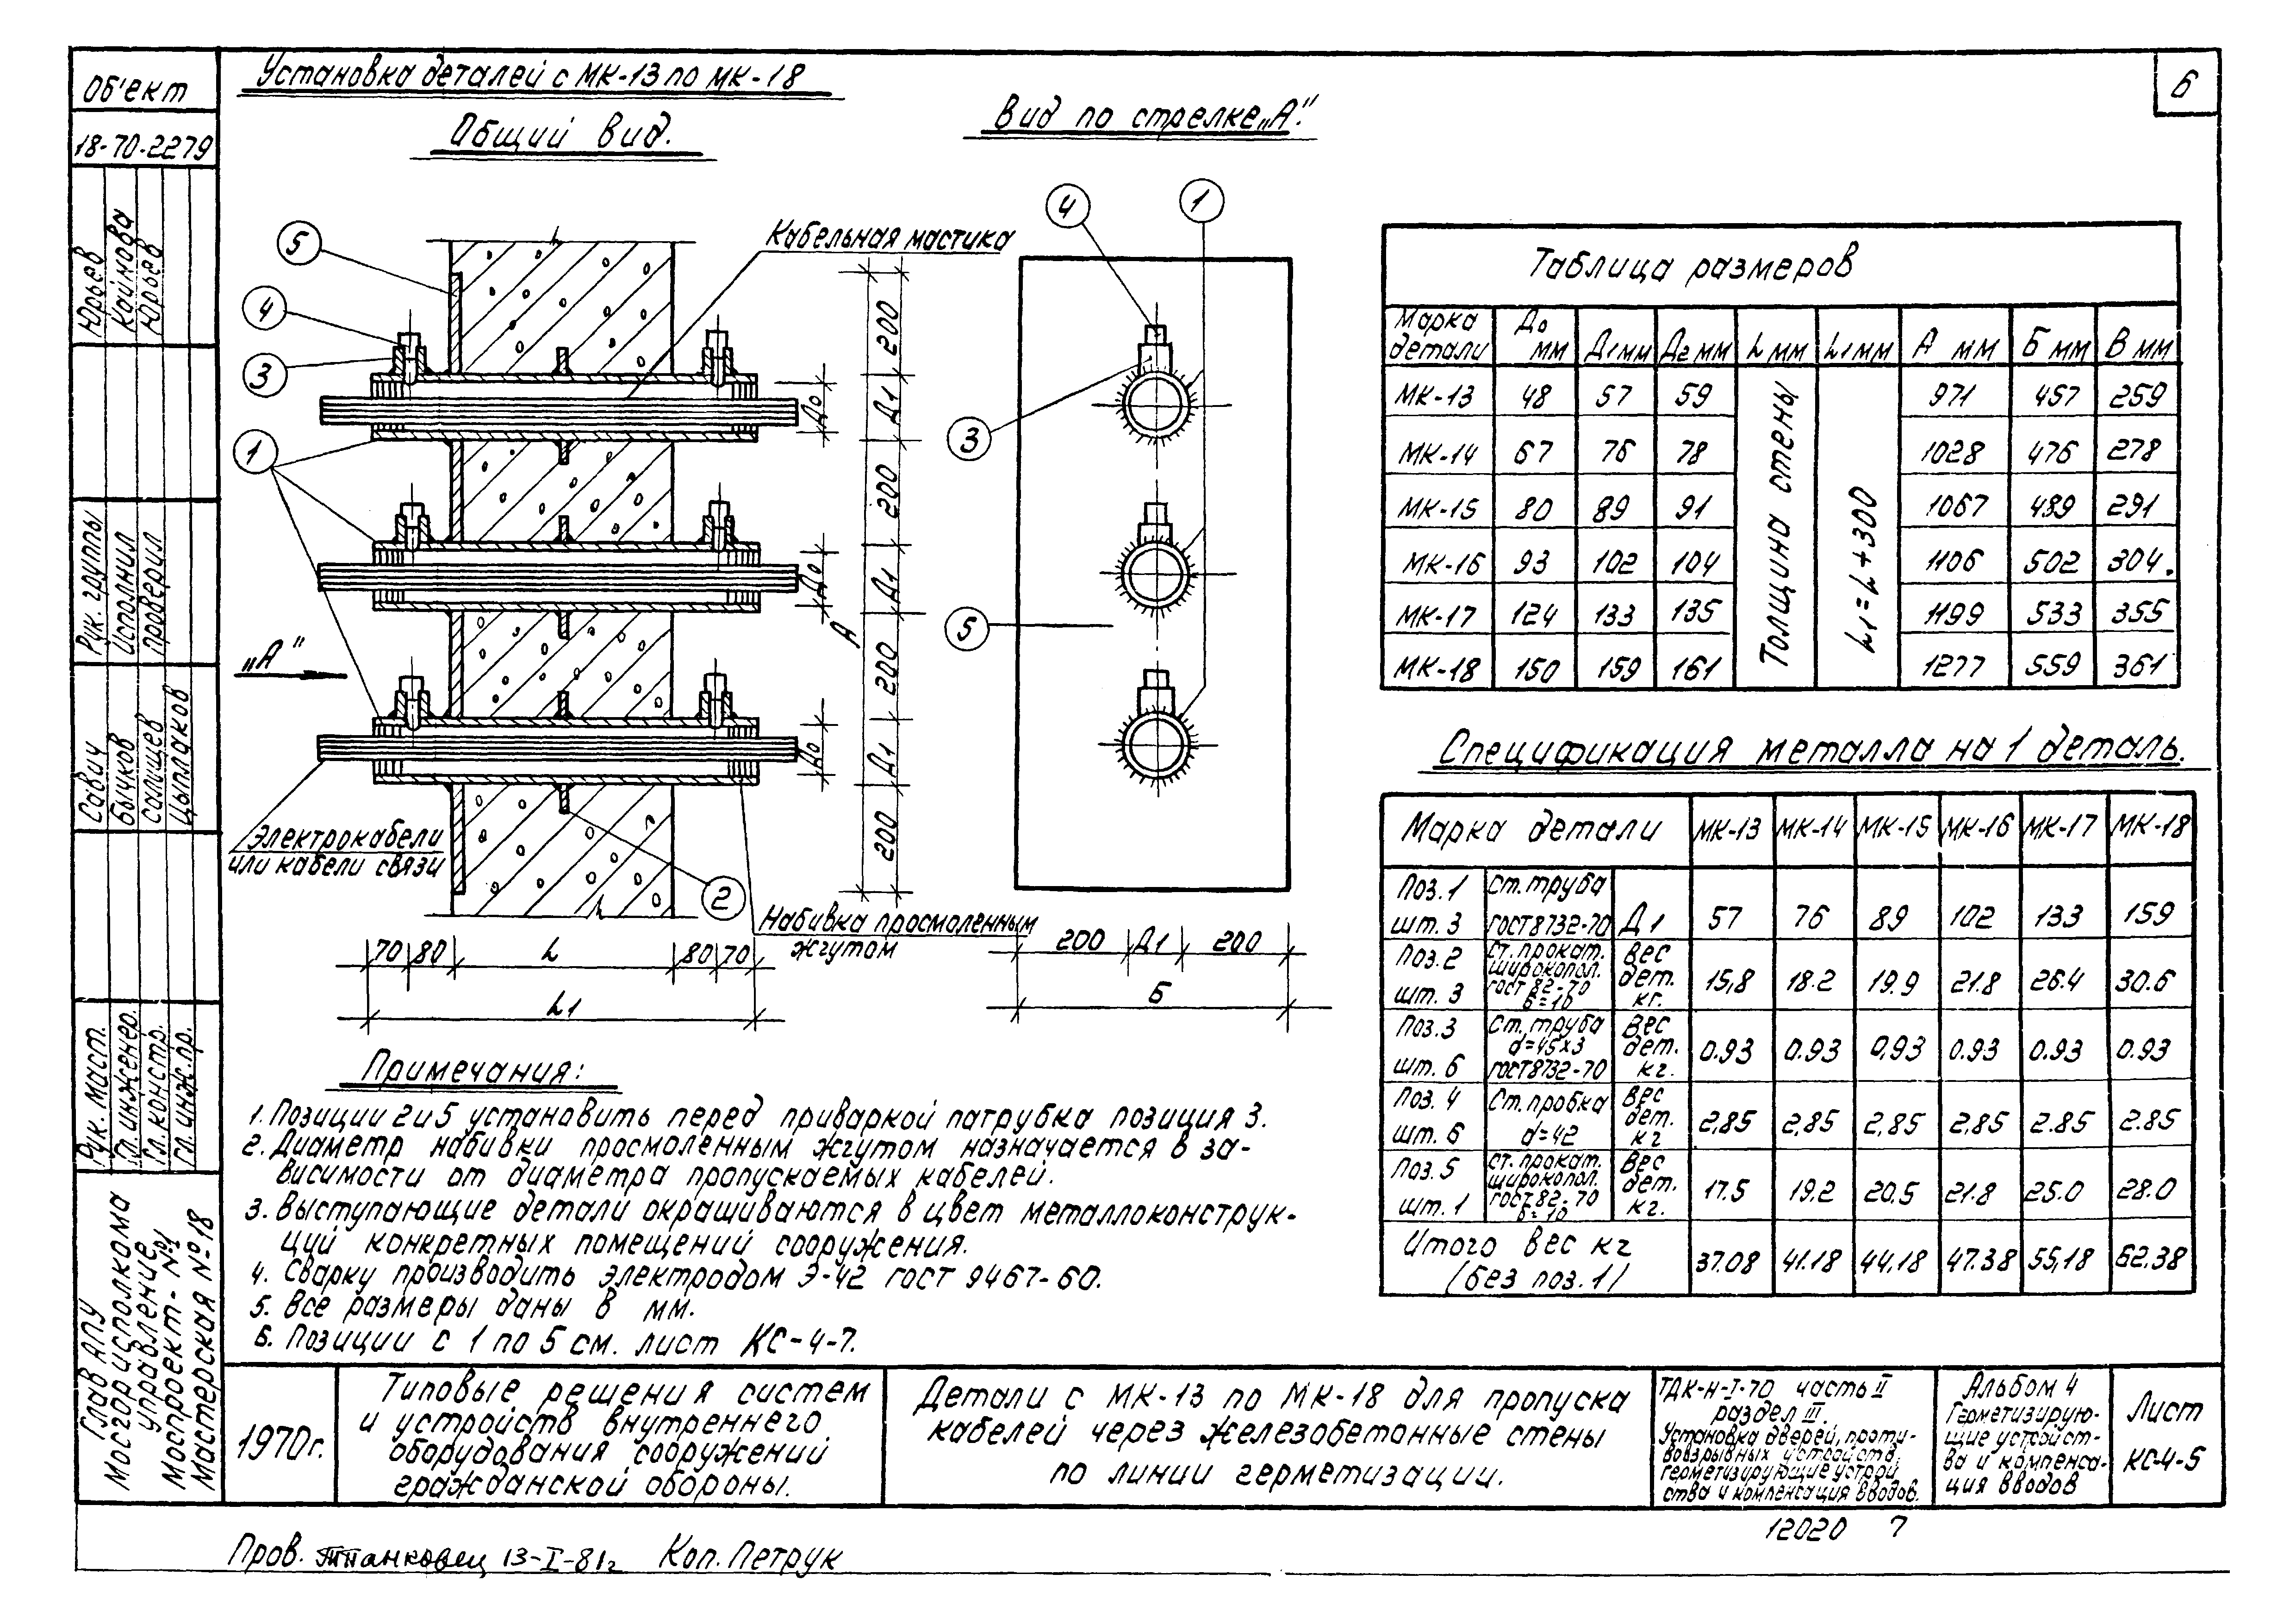 Об'ект
18-70-2279
Юрьев
Кайнова
Юрьев
Рук. группы
Исполнил
Проверил
Савич
Бычков
Салищев
Цыплаков
Рук. маст.
Гл. инженер.
Гл. констр.
Гл. инж. пр.
Глав АПУ
Мосгорисполкома
управление
Моспроект-№1
Мастерская №18
6
Установка деталей с МК-13 по МК-18
Общий вид.
Вид по стрелке „А".
5
4
3
1
2
Кабельная мастика
„А"
Электрокабели
или кабели связи
Набивка просмоленным
жгутом
До
До
До
200
Д1
200
Д1
200
Д1
200
А
70 80 L 80 70
L1
4
1
3
5
200 Д1 200
Б
Таблица размеров
Марка детали До мм Д1 мм Д2 мм L мм L1 мм А мм Б мм В мм
МК-13 48 57 59 971 457 259
МК-14 67 76 78 1028 476 278
МК-15 80 89 91 1067 489 291
МК-16 93 102 104 1106 502 304.
МК-17 124 133 135 1199 533 355
МК-18 150 159 161 1277 559 361
Толщина стены
L1=L+300
Спецификация металла на 1 деталь.
Марка детали МК-13 МК-14 МК-15 МК-16 МК-17 МК-18
Поз.1 шт. 3 Ст. труба ГОСТ 8732-70 Д1 57 76 89 102 133 159
Поз.2 шт. 3 Ст. прокат. широкопол. ГОСТ 82-70 б=10 Вес дет. кг. 15,8 18.2 19.9 21.8 26.4 30.6
Поз.3 шт. 6 Ст. труба d=45х3 ГОСТ 8732-70 Вес дет. кг. 0.93 0.93 0,93 0.93 0.93 0.93
Поз. 4 шт. 6 Ст. пробка d=42 Вес дет. кг 2,85 2,85 2,85 2.85 2.85 2.85
Поз. 5 шт. 1 Ст. прокат. широкопол. ГОСТ 82-70 б=10 Вес дет. кг. 17.5 19.2 20.5 21.8 25.0 28.0
Итого вес кг (без поз. 1) 37.08 41.18 44,18 47.38 55,18 62.38
Примечания:
1. Позиции 2 и 5 установить перед приваркой патрубка позиция 3.
2. Диаметр набивки просмоленным жгутом назначается в за-
висимости от диаметра пропускаемых кабелей.
3. Выступающие детали окрашиваются в цвет металлоконструк-
ций конкретных помещений сооружения.
4. Сварку производить электродом Э-42 ГОСТ 9467-60.
5. Все размеры даны в мм.
6. Позиции с 1 по 5 см. лист КС-4-7.
1970г.
Типовые решения систем
и устройств внутреннего
оборудования сооружений
гражданской обороны.
Детали с МК-13 по МК-18 для пропуска
кабелей через железобетонные стены
по линии герметизации.
ТДК-Н-I-70 часть II
раздел III.
Установка дверей, проти-
вовзрывных устройств,
герметизирующие устрой
ства и компенсация вводов.
Альбом 4
Герметизирую-
щие устройст-
ва и компенса-
ция вводов
Лист
КС-4-5
12020 7
Пров. Танковец 13-I-81г Коп. Петрук